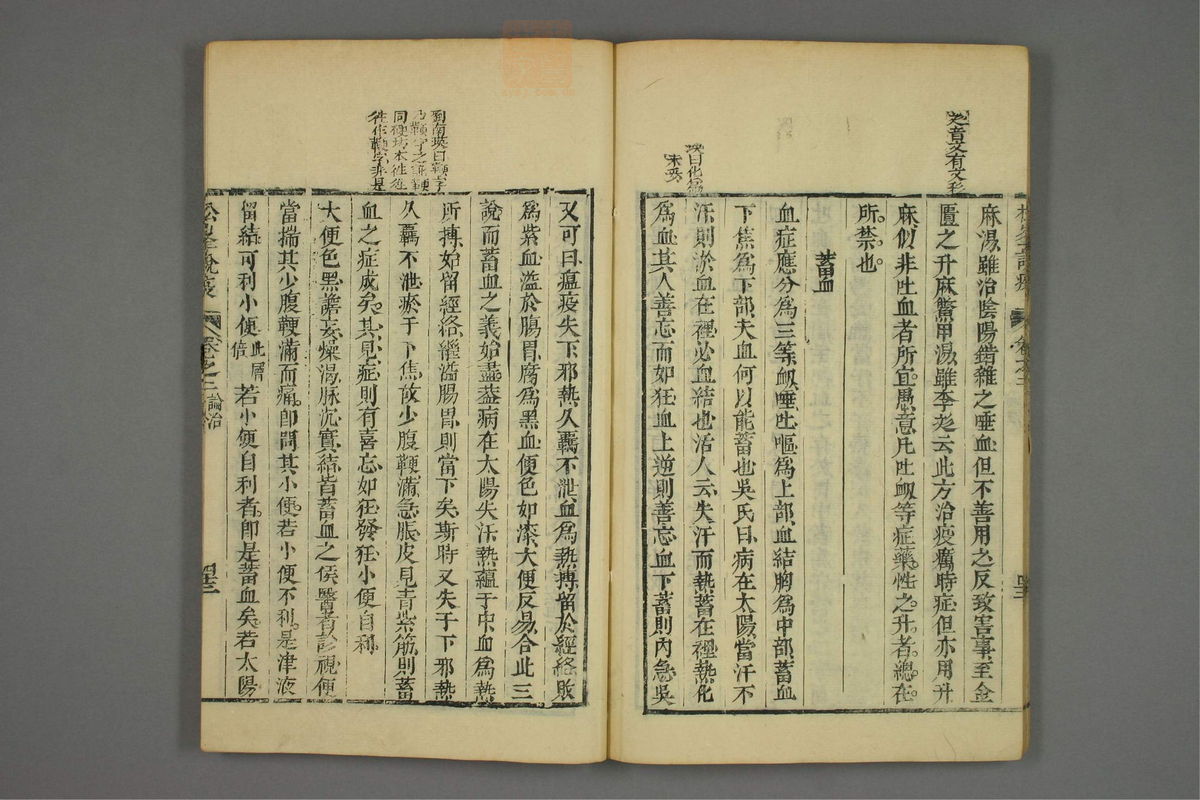 麻湯雖治陰陽錯雜之唾血但不善用之反致害事至金
匱之升麻鱉甲湯雖李彣云此方治疫癘時症但亦用升
麻似非吐血者所宜愚意凡吐衂等症藥性之升者總在
所禁也
蓄血
血症應分為三等衂唾吐嘔為上部血結胸為中部蓄血
下焦為下部夫血何以能蓄也吳氏曰病在太陽當汗不
汗則淤血在裡必血結也活人云失汗而熱蓄在裡熱化
為血其人善忘而如狂血上逆則善忘血下蓄則內急吳
又可曰瘟疫失下邪熱久羈不泄血為熱搏留於經絡敗
為紫血溢於腸胃腐為黑血便色如漆大便反易合此三
說而蓄血之義始盡益病在太陽失汗熱蘊于中血為熱
所搏始留經絡繼溢腸胃則當下矣斯時又失于下邪熱
久羈不泄瘀于下焦故少腹鞕滿急脹皮見青紫筋則蓄
血之症成矣其見症則有喜忘如狂發狂小便自利
大便色黑譫妄燥渴脉沉實結皆蓄血之侯醫者診視便
當揣其少腹鞕滿而痛即問其小便若小便不利是津液
留結可利小便 若小便自利者即是蓄血矣若太陽
卷之三 論治